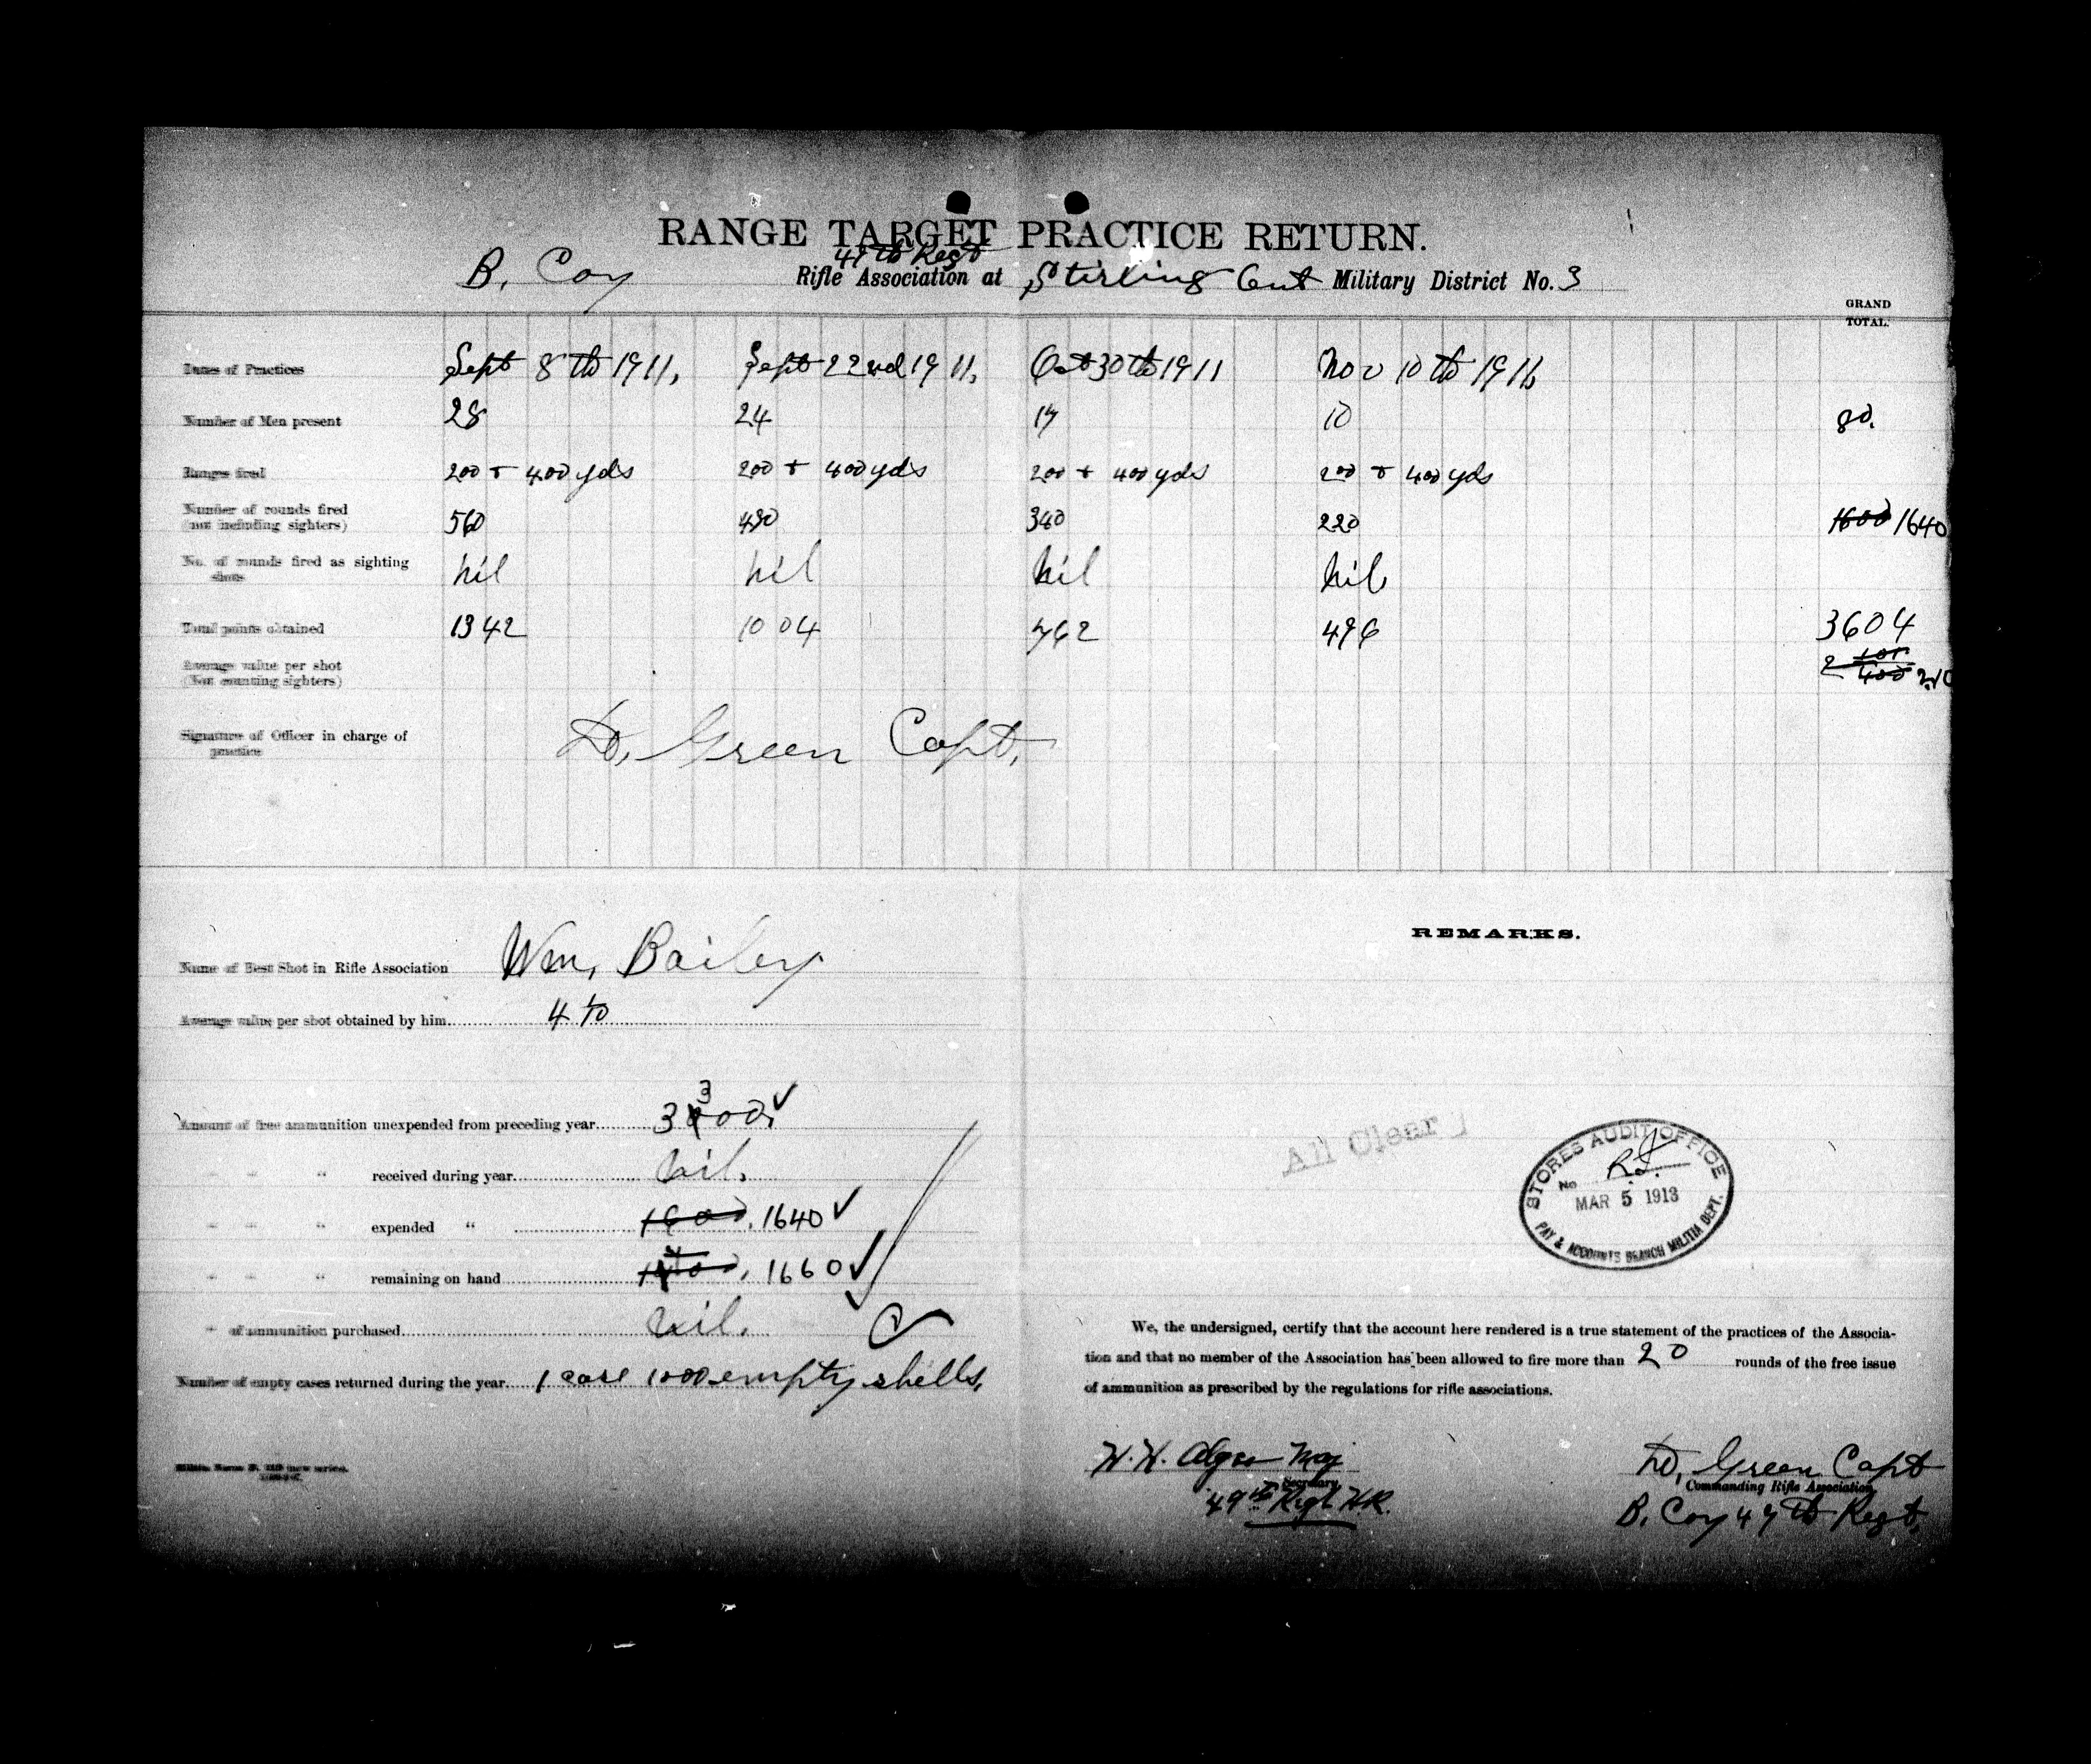 RANGE TARGET PRACTICE RETURN.
49th Regt
B. Coy Rifle Association at Stirling Ont Military District No. 3
GRAND TOTAL.
Dates of Practices Sept 8th 1911, Sept 22nd 1911, Oct 30th 1911 Nov 10th 1911,
Number of Men present 28 24 17 10 80.
Ranges fired 200 + 400 yds 200 + 400 yds 200 + 400 yds 200 + 400 yds
Number of rounds fired (not including sighters) 560 480 340 220 1600 1640
No. of rounds fired as sighting shots nil nil nil nil
Total points obtained 1342 1004 762 496 3604
Average value per shot (Not counting sighters) 2
Signature of Officer in charge of practice D. Green Capt.
Name of Best Shot in Rifle Association Wm. Bailey
REMARKS.
Average value per shot obtained by him. 4
Amount of free ammunition unexpended from preceding year 3300 ✓
" " " received during year nil.
" " " expended " 1600, 1640 ✓
" " " remaining on hand 1660 ✓
" of ammunition purchased nil.
Number of empty cases returned during the year 1 case 1000 empty shells.
All Clear
STORES AUDIT OFFICE
No
MAR 5 1913
PAY & ACCOUNTS BRANCH MILITIA DEPT.
We, the undersigned, certify that the account here rendered is a true statement of the practices of the Associa-
tion and that no member of the Association has been allowed to fire more than 20 rounds of the free issue
of ammunition as prescribed by the regulations for rifle associations.
Maj
Secretary
49th Regt H.R.
D. Green Capt
Commanding Rifle Association
B. Coy 49th Regt.